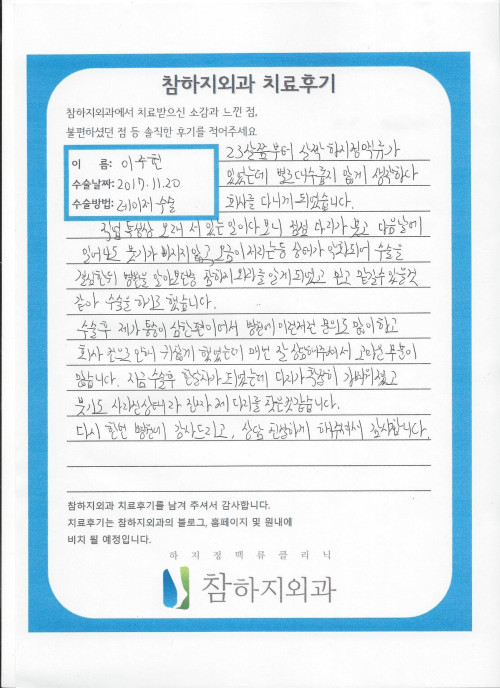 참하지외과 치료후기
참하지외과에서 치료받으신 소감과 느낀 점,
불편하셨던 점 등 솔직한 후기를 적어주세요
이 름: 이수현
수술날짜: 2017.11.20
수술방법: 레이저 수술
23살쯤부터 살짝 하지정맥류가
있었는데 별로 대수롭지 않게 생각하다
회사를 다니게 되었습니다.
직업 특성상 오래 서 있는 일이다 보니 점점 다리가 붓고 다음날에
일어나도 붓기가 빠지지않고 오금이 저리는등 상태가 악화되어 수술을
결심한뒤 병원을 알아보던중 참하지외과를 알게되었고 믿고 맡길수 있을것
같아 수술을 하기로 했습니다.
수술후 제가 통증이 심한편이어서 병원에 이런저런 문의도 많이하고
회사 건으로 귀찮게 했었는데 매번 잘 상담해주셔서 고마운 부분이
많습니다. 지금 수술후 한달차가 되었는데 다리가 확실히 가벼워졌고
붓기도 사라진상태라 진짜 제 다리를 찾은것같습니다.
다시 한번 병원에 감사드리고, 상담 친절하게 해주셔서 감사합니다.
참하지외과 치료후기를 남겨 주셔서 감사합니다.
치료후기는 참하지외과의 블로그, 홈페이지 및 원내에
비치 될 예정입니다.
하지정맥류클리닉
참하지외과